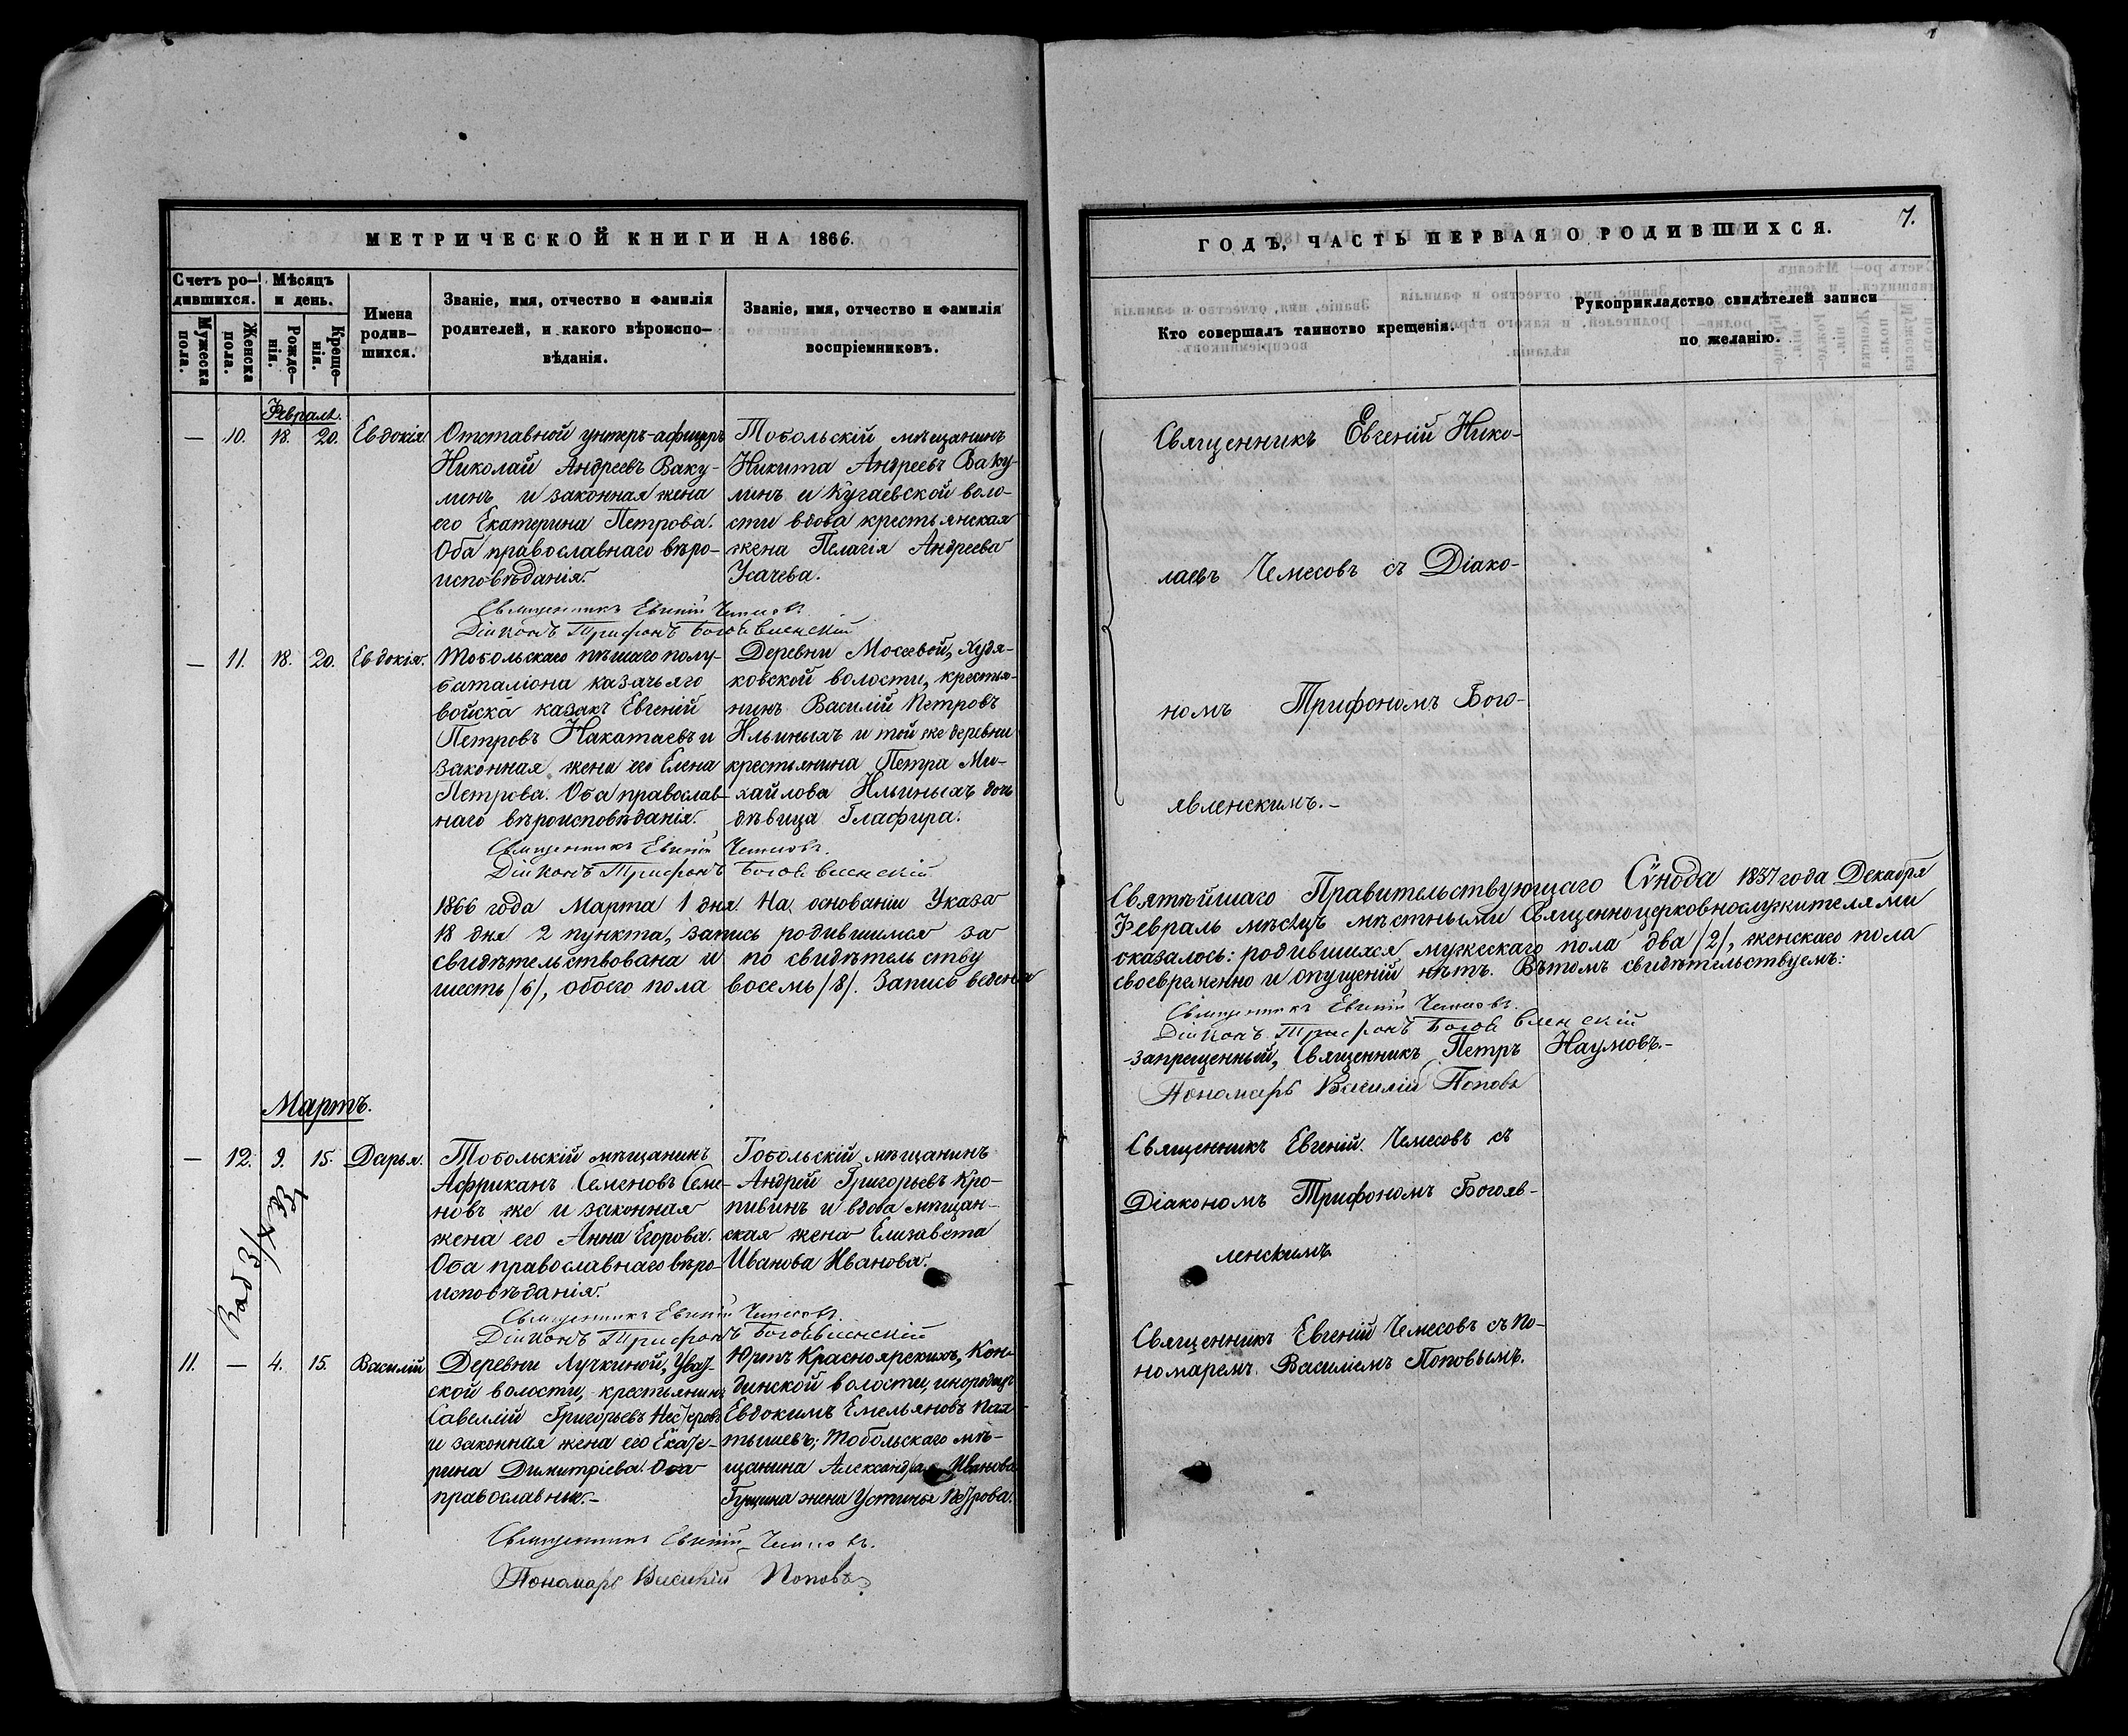 МЕТРИЧЕСКОЙ КНИГИ НА 1866.
Счетъ ро-
дившихся.
Мужеска
пола.
Женска
пола.
Мѣсяцъ
и день.
Рожде-
нія.
Креще-
нія.
Имена
родив-
шихся.
Званіе, имя, отчество и фамилія
родителей, и какого вѣроиспо-
вѣданія.
Званіе, имя, отчество и фамилія
воспріемниковъ.
Февраль.
— 10. 18. 20. Евдокія
Отставной унтеръ-афицеръ
Николай Андреевъ Ваку-
линъ и законная жена
его Екатерина Петрова.
Оба православнаго вѣро-
исповѣданія.
Тобольскій мѣщанинъ
Никита Андреевъ Ваку-
линъ и Кугаевской воло-
сти вдова крестьянская
жена Пелагія Андреева
Усачева.
Священникъ Евгеній Чемесовъ
Діаконъ Трифонъ Богоявленскій
— 11. 18. 20. Евдокія.
Тобольскаго пѣшаго полу-
баталіона казачьяго
войска казакъ Евгеній
Петровъ Накатаевъ и
законная жена его Елена
Петрова. Оба православ-
наго вѣроисповѣданія.
Деревни Мосеевой, Худя-
ковской волости, крестья-
нинъ Василій Петровъ
Ильиныхъ и той же деревни
крестьянина Петра Ми-
хайлова Ильиныхъ дочь
дѣвица Глафира.
Священникъ Евгеній Чемесовъ.
Діаконъ Трифонъ Богоявленскій
1866 года Марта 1 дня. На основаніи Указа
18 дня 2 пункта, запись родившимся за
свидѣтельствована и по свидѣтельству
шесть /6/, обоего пола восемь /8/. Запись ведена
Мартъ.
— 12. 9. 15. Дарья.
Тобольскій мѣщанинъ
Африканъ Семеновъ Семе-
новъ же и законная
жена его Анна Егорова.
Оба православнаго вѣро-
исповѣданія.
Тобольскій мѣщанинъ
Андрей Григорьевъ Кро-
пивинъ и вдова мѣщан-
ская жена Елизавета
Иванова Иванова.
Священникъ Евгеній Чемесовъ.
Діаконъ Трифонъ Богоявленскій
11. — 4. 15. Василій
Деревни Лучкиной, Уват-
ской волости, крестьянинъ
Савеллій Григорьевъ Нестеровъ
и законная жена его Екате-
рина Димитріева. Оба
православные.-
Юртъ Красноярскихъ, Кон-
динской волости, инородецъ
Евдокимъ Емельяновъ
тышевъ; Тобольскаго мѣ-
щанина Александра Иванова
Гущина жена Устинья Петрова.
Священникъ Евгеній Чемесовъ.
Пономарь Василій Поповъ
ГОДЪ, ЧАСТЬ ПЕРВАЯ О РОДИВШИХСЯ.
7.
Кто совершалъ таинство крещенія.
Рукоприкладство свидѣтелей записи
по желанію.
Священникъ Евгеній Нико-
лаевъ Чемесовъ съ Діако-
номъ Трифономъ Бого-
явленскимъ.-
Святѣйшаго Правительствующаго Сѵнода 1837 года Декабря
Февраль мѣсяцъ мѣстными Священноцерковнослужителями
оказалось: родившихся мужескаго пола два /2/, женскаго пола
своевременно и опущеній нѣтъ. Въ томъ свидѣтельствуемъ:
Священникъ Евгеній Чемесовъ.
Діаконъ Трифонъ Богоявленскій
запрещенный, Священникъ Петръ Наумовъ.-
Пономарь Василій Поповъ
Священникъ Евгеній Чемесовъ съ
Діакономъ Трифономъ Богояв-
ленскимъ
Священникъ Евгеній Чемесовъ съ По-
номаремъ Василіемъ Поповымъ.